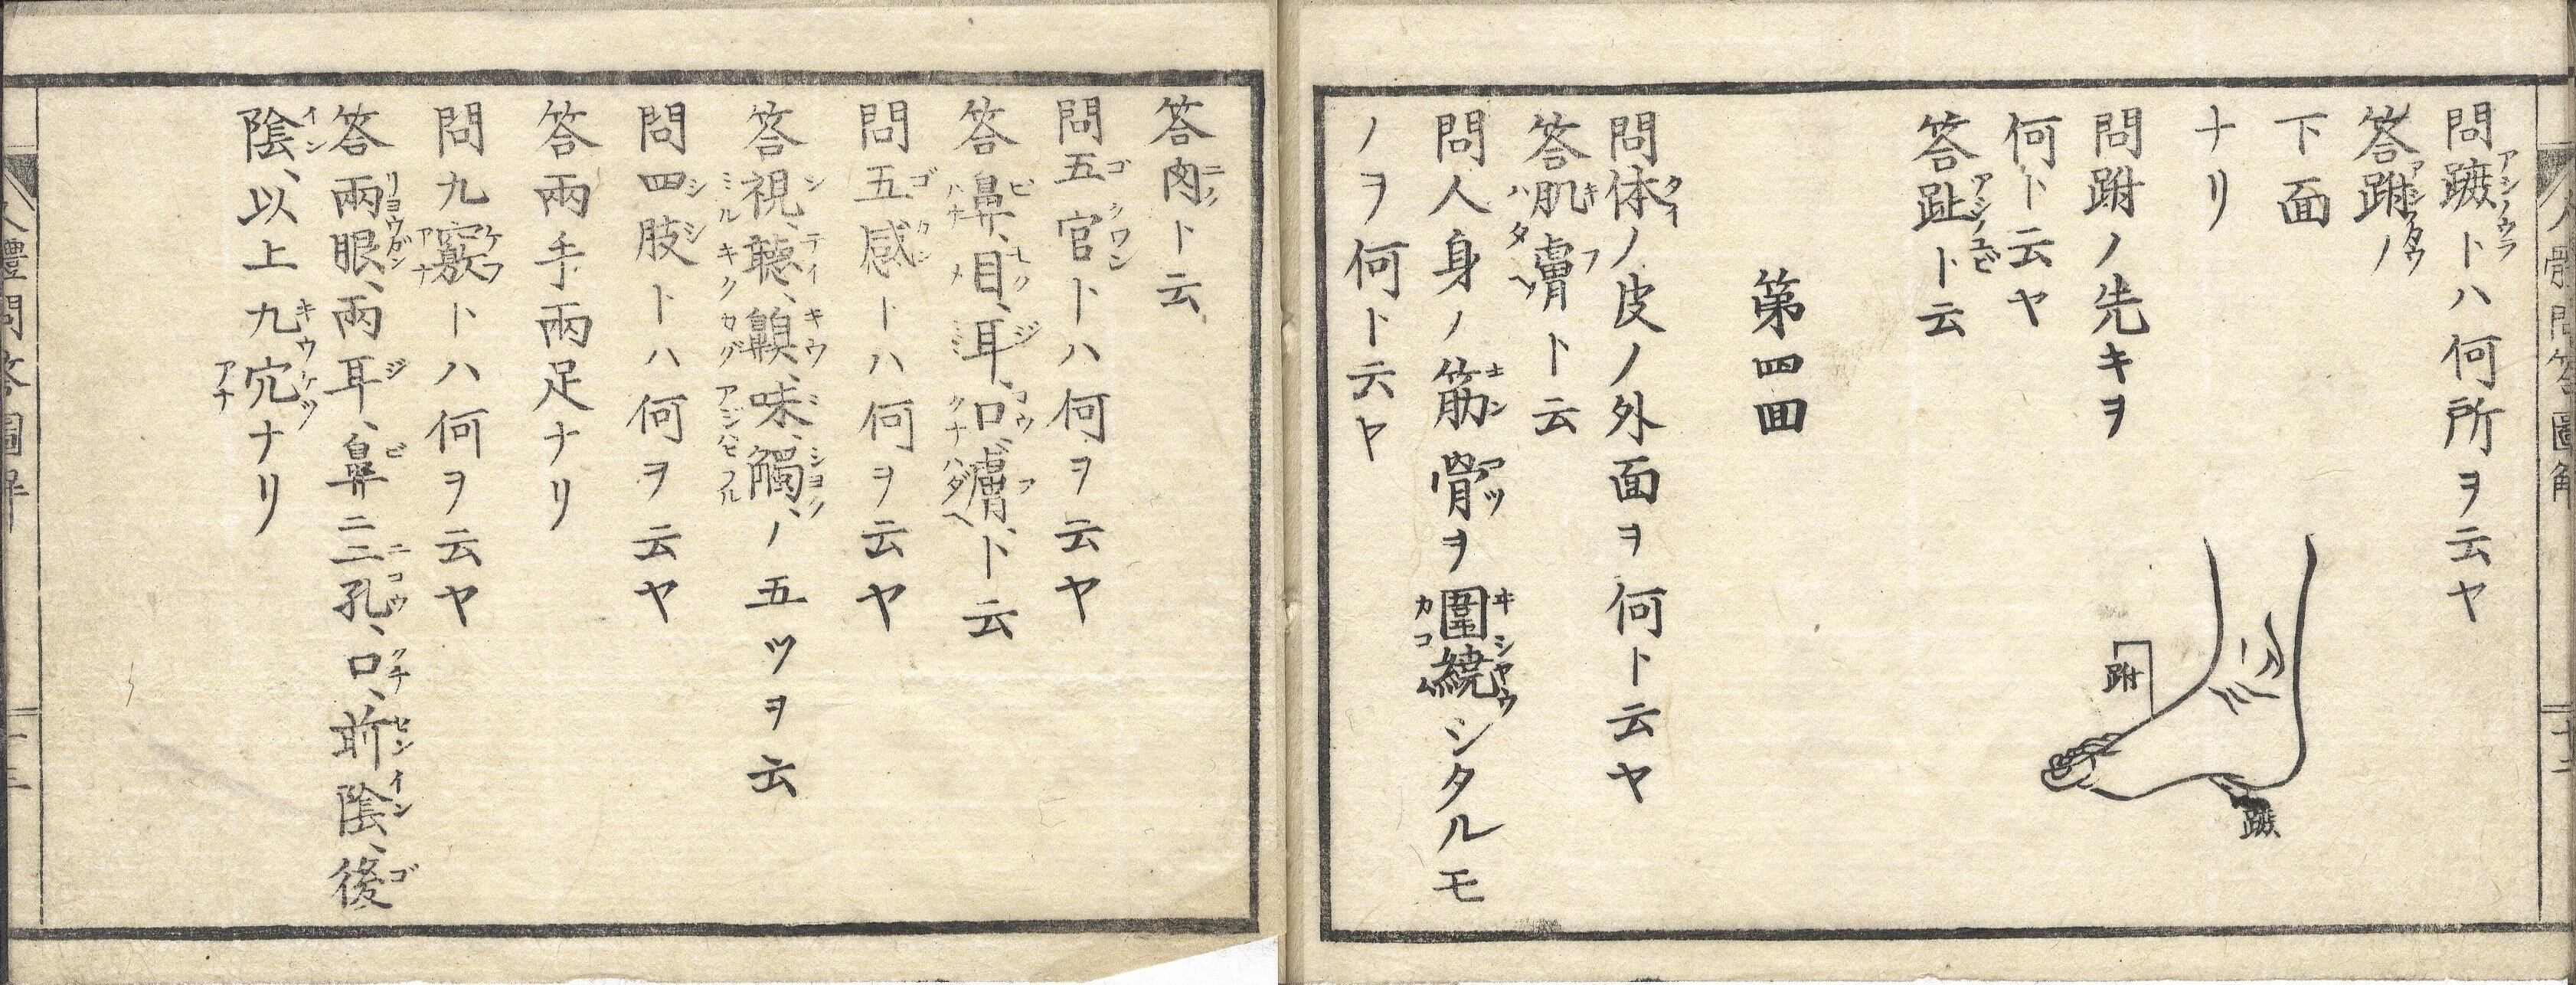 問蹠トハ何所ヲ云ヤ
答跗ノ
下面
ナリ
問跗ノ先キヲ
何ト云ヤ
答趾ト云
跗
蹠
第四回
問体ノ皮ノ外面ヲ何ト云ヤ
答肌膚ト云
問人身ノ筋骨ヲ圍繞シタルモ
ノヲ何ト云ヤ
答肉ト云
問五官トハ何ヲ云ヤ
答鼻、目、耳、口、膚、ト云
問五感トハ何ヲ云ヤ
答視、聴、齅、味、觸、ノ五ツヲ云
問四肢トハ何ヲ云ヤ
答兩手兩足ナリ
問九竅トハ何ヲ云ヤ
答兩眼、兩耳、鼻ニ二孔、口、前陰、後
陰、以上九穴ナリ
人體問答圖解